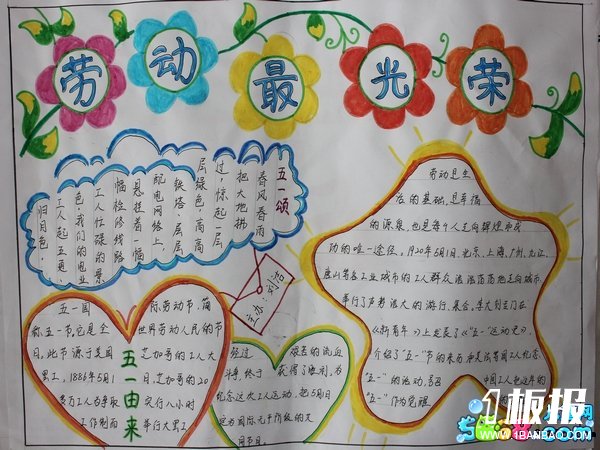 劳动最光荣
五一颂
春风春雨
把大地拂
过,惊起一层
层绿色,高高
铁塔、层层
配电网络上,
悬挂着一幅
幅检修线路
工人忙碌的景
色,我们的电业
工人起五更,
归月色,
劳动是生
存的基础,是幸福
的源泉,也是每个人走向辉煌成
功的唯一途径。1920年5月1日,北京、上海、广州、九江、
唐山等各工业城市的工人群众浩浩荡荡地走向城市
举行了声势浩大的游行、集会。李大钊专门在
《新青年》上发表了《"五一"运动史》,
介绍了"五一"节的来历和美法等国工人纪念
"五一"的活动,号召中国工人把这年的
"五一"作为觉醒
五一由来
五一国际劳动节,简
称五一节,它是全世界劳动人民的节
日,此节源于美国芝加哥的工人大
罢工,1886年5月1日,芝加哥的20
多万工人为争取实行八小时
工作制而举行大罢工
经过艰苦的流血
斗争,终于获得了胜利,为
纪念这次工人运动,把5月1日
定为国际无产阶级的
1板报
WWW.1BANBAO.COM